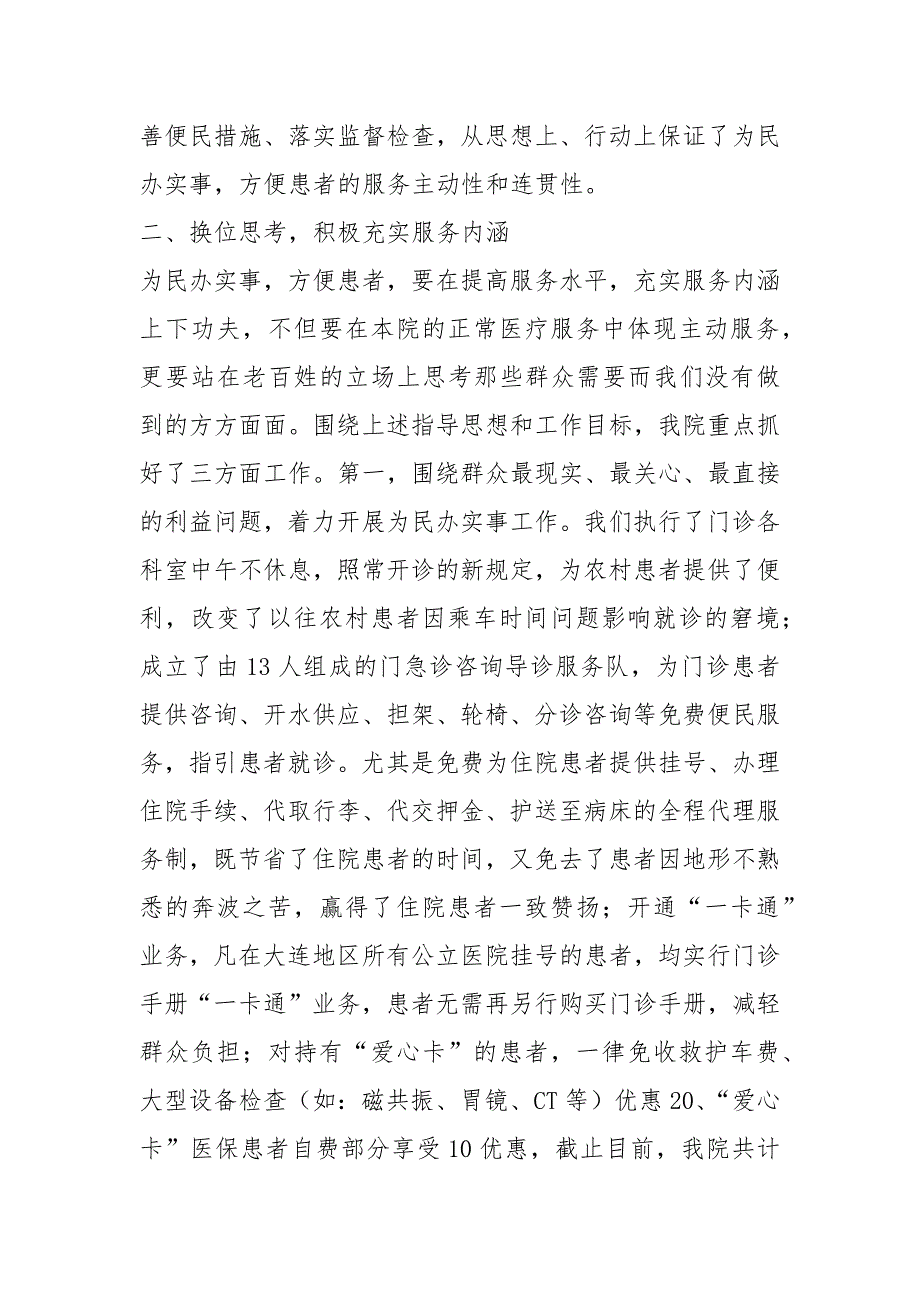 善便民措施、落实监督检查，从思想上、行动上保证了为民
办实事，方便患者的服务主动性和连贯性。
二、换位思考，积极充实服务内涵
为民办实事，方便患者，要在提高服务水平，充实服务内涵
上下功夫，不但要在本院的正常医疗服务中体现主动服务，
更要站在老百姓的立场上思考那些群众需要而我们没有做
到的方方面面。围绕上述指导思想和工作目标，我院重点抓
好了三方面工作。第一，围绕群众最现实、最关心、最直接
的利益问题，着力开展为民办实事工作。我们执行了门诊各
科室中午不休息，照常开诊的新规定，为农村患者提供了便
利，改变了以往农村患者因乘车时间问题影响就诊的窘境；
成立了由 13 人组成的门急诊咨询导诊服务队，为门诊患者
提供咨询、开水供应、担架、轮椅、分诊咨询等免费便民服
务，指引患者就诊。尤其是免费为住院患者提供挂号、办理
住院手续、代取行李、代交押金、护送至病床的全程代理服
务制，既节省了住院患者的时间，又免去了患者因地形不熟
悉的奔波之苦，赢得了住院患者一致赞扬；开通“一卡通”
业务，凡在大连地区所有公立医院挂号的患者，均实行门诊
手册“一卡通”业务，患者无需再另行购买门诊手册，减轻
群众负担；对持有“爱心卡”的患者，一律免收救护车费、
大型设备检查（如：磁共振、胃镜、CT 等）优惠 20、“爱心
卡”医保患者自费部分享受 10 优惠，截止目前，我院共计